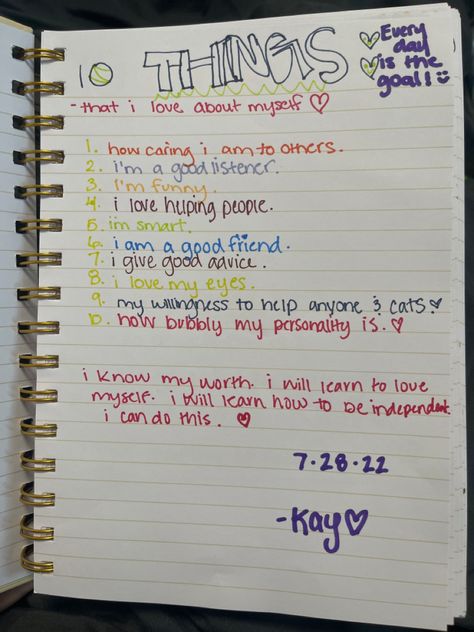 10 THINGS
Every
day
is the
goal!
- that i love about myself ♡
1. how caring i am to others.
2. i'm a good listener.
3. I'm funny.
4. i love helping people.
5. im smart.
6. i am a good friend.
7. i give good advice.
8. i love my eyes.
9. my willingness to help anyone & cats.♡
10. how bubbly my personality is.♡
i know my worth. i will learn to love
myself. i will learn how to be independent.
i can do this. ♡
7•28•22
-Kay♡